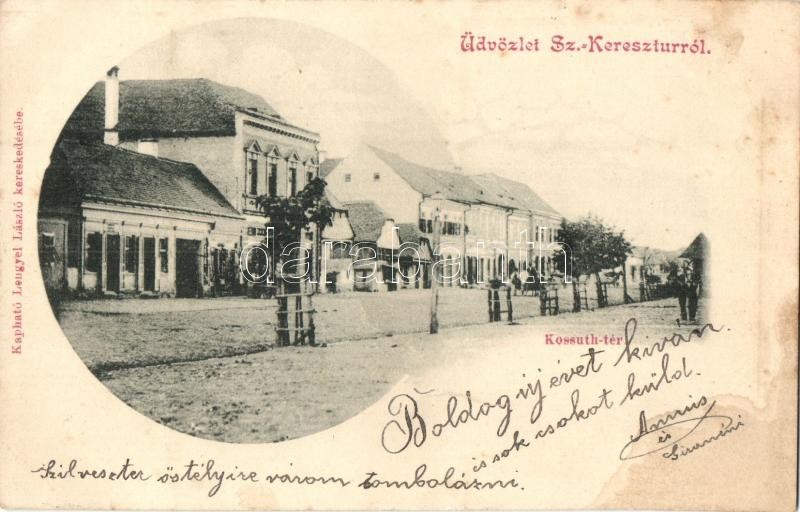 Üdvözlet Sz.-Kereszturról.
Kapható Lengyel László kereskedésébe.
darabanth
Kossuth-tér
Boldog új évet kíván
és sok csokot küld.
Annus
és
Szilveszter östélyire várom tombolázni.